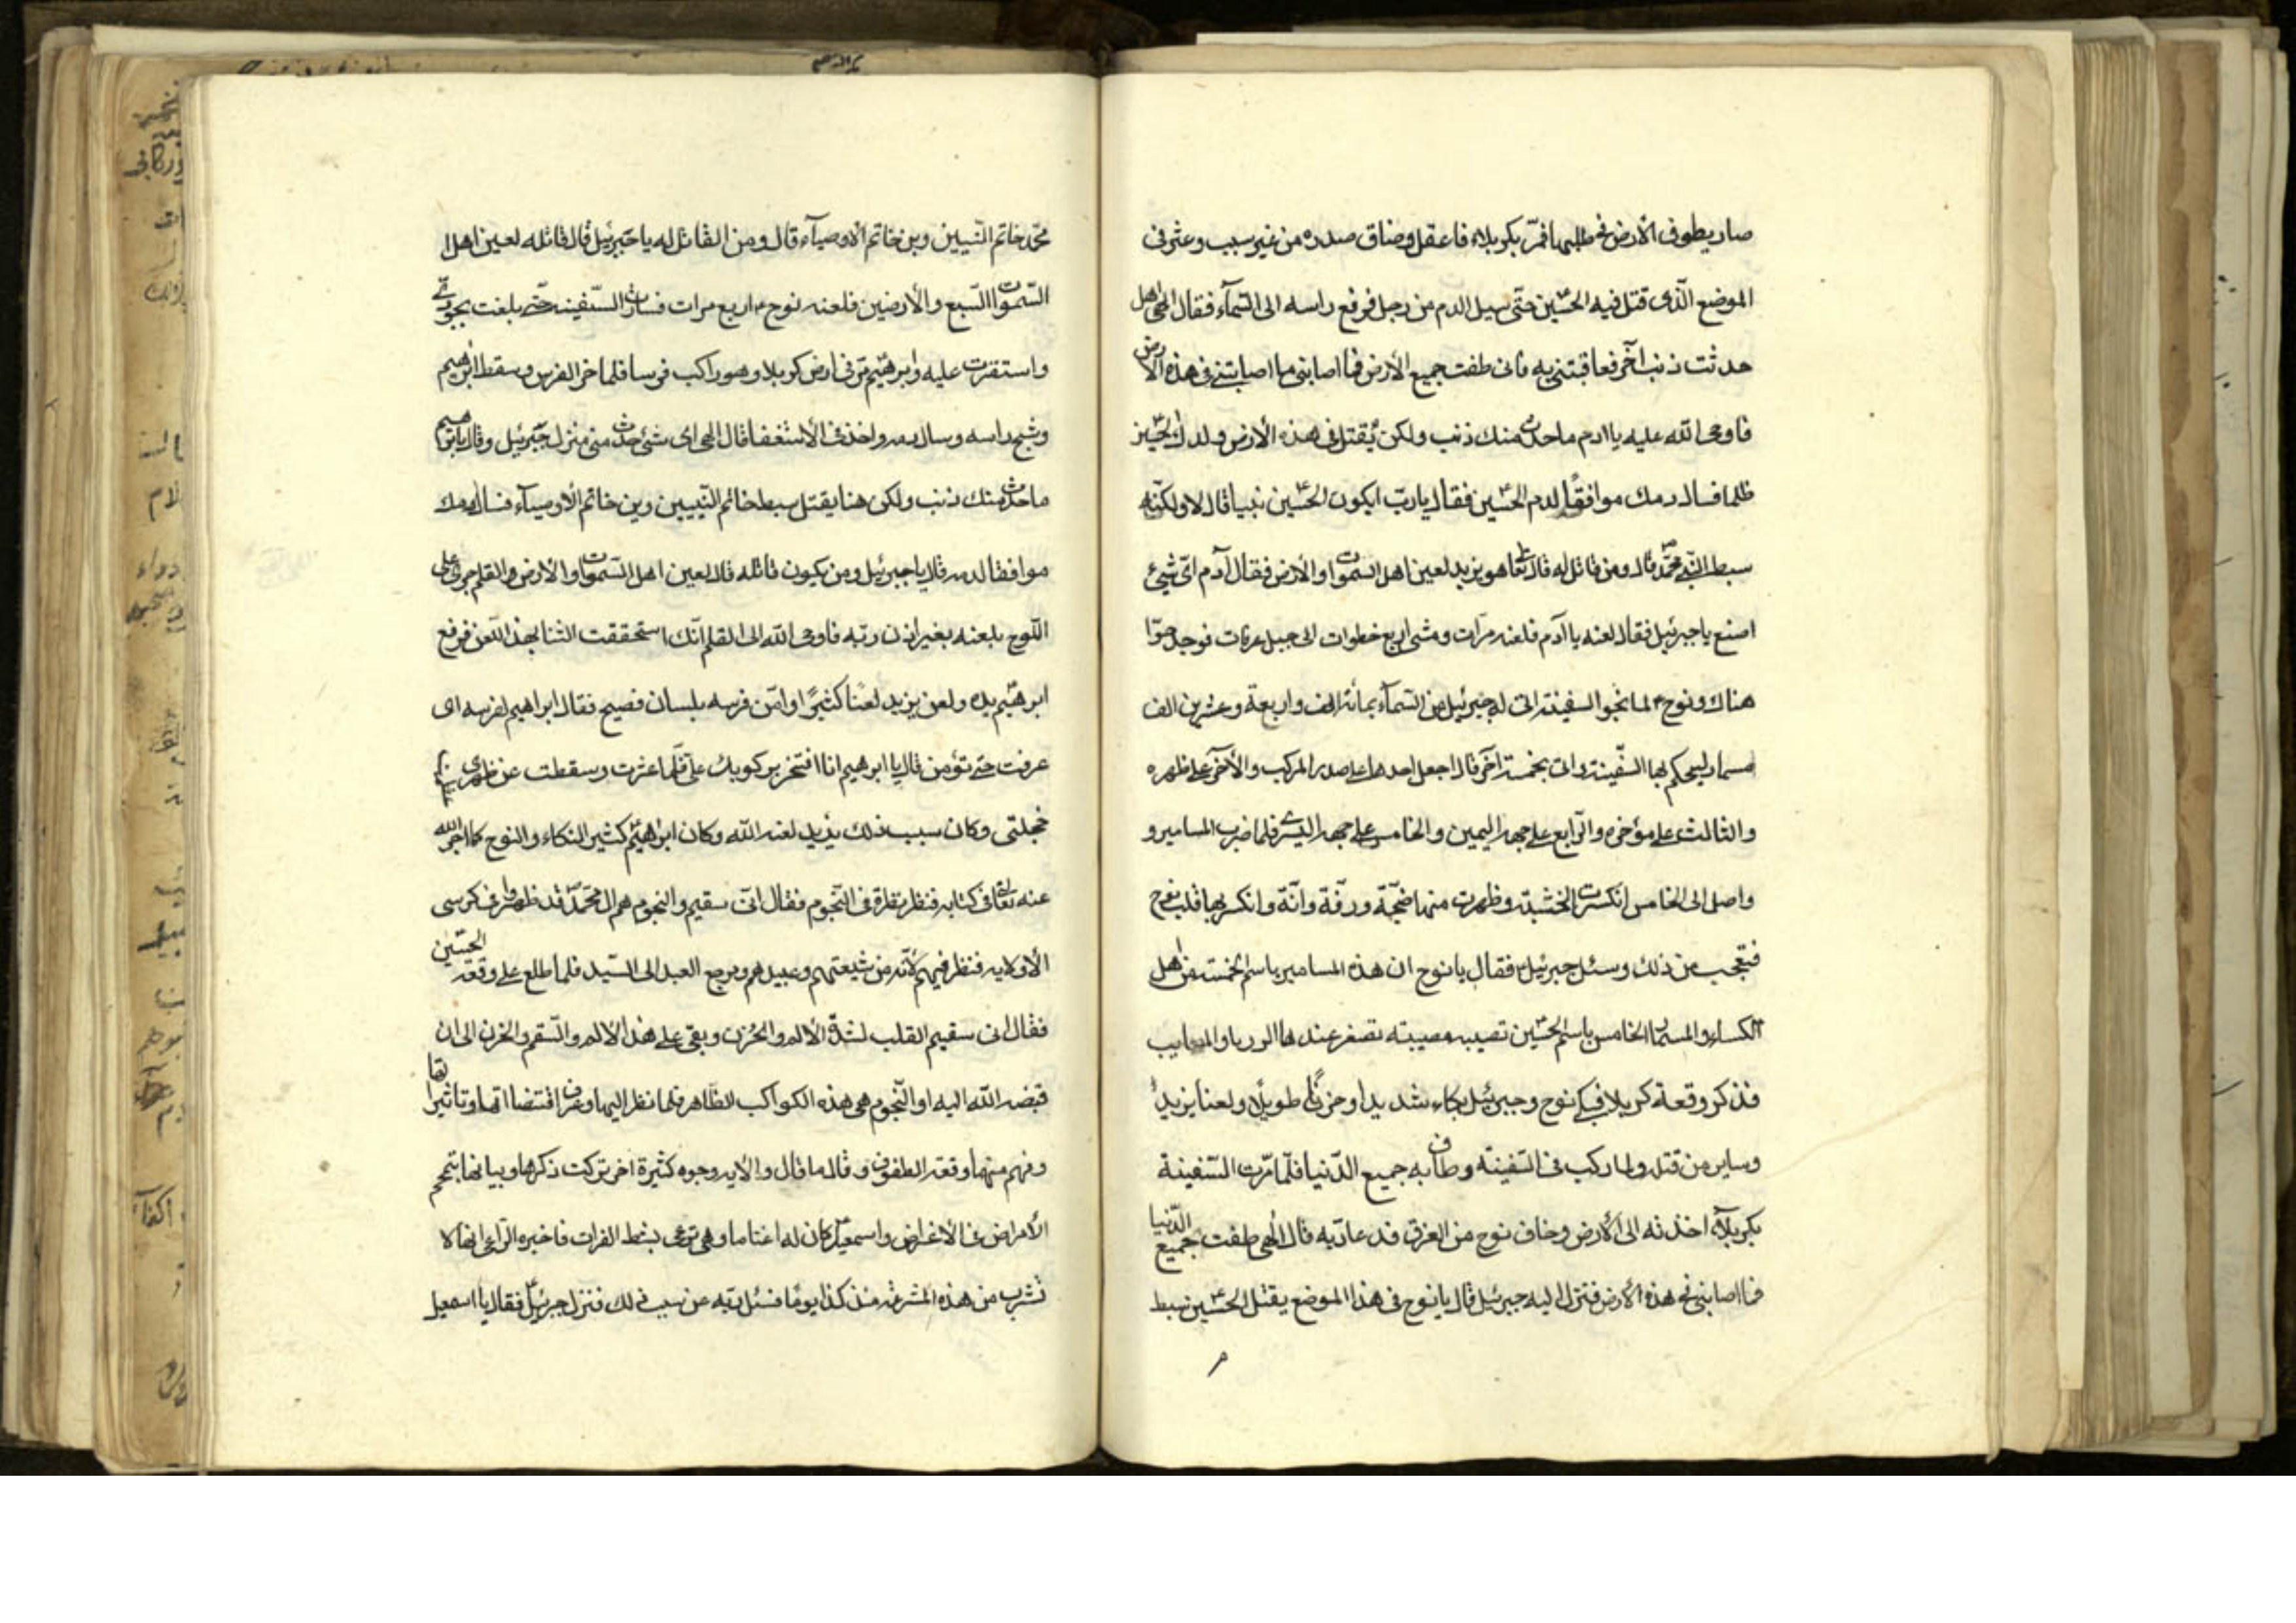 صار يطوف الأرض في طلبها فمرّ بكربلاء فاعقل وضاق صدره من غير سبب وعثر في
الموضع الّذى قتل فيه الحسين حتّى سيل الدم من رجل فرفع راسه الى السّماء فقال الهى هل
حدثت ذنب آخر فعاقبتنى به فانى طفت جميع الأرض فما اصابنى ما اصابتنى فى هذه الأرض
فاوحى اللّه عليه يا ادم ما حدث منك ذنب ولكن يُقتل فى هذه الأرض ولدك الحسين
ظلما فسال دمك موافقًا لدم الحسين فقال يا ربّ ايكون الحسين نبيا قال لا ولكنّه
سبط النّبى محمّد قال ومن قاتل له قال تعا هو يزيد لعين اهل السموات والأرض فقال آدم اىّ شىء
اصنع يا جبرئيل فقال لعنه يا آدم فلعنه مرّات ومشى اربع خطوات الى جبل عرفات فوجد حوّا
هناك ونوح ع لما نجو السفينة اتى له جبرئيل من السّماء بمائة الف واربعة وعشرين الف
مسمار ليحكم بها السّفينة واتى بخمسة آخر قال اجعل احدها على صدر المركب والأخر على ظهره
والثالث على مؤخره والرّابع على جهة اليمين والخامس على جهة اليسرى فلما ضرب المسامير و
واصل الى الخامس انكسرت الخشبة وظهرت منها ضجّة ورنّة وانّة وانكسر بها قلب نوح
فتعجب من ذلك وسئل جبرئيل فقال يا نوح ان هذه المسامير باسم الخمسة من اهل
الكساء والمسمار الخامس باسم الحسين تصيبه مصيبته تصغر عندها الورىا والمصايب
فذكر وقعة كربلا فبكى نوح وجبرئيل بكاء شديدا وحزنًا طويلًا ولعنا يزيدًا
وساير من قتله ولما ركب فى السّفينة وطاف به جميع الدّنيا فلمّا مرّت السّفينة
بكربلآء اخذته الى الأرض وخاف نوح من الغرق فدعا ربّه قال الهى طفت جميع الدّنيا
فما اصابنى فى هذه الأرض فنزل اليه جبرئيل قال يا نوح فى هذا الموضع يقتل الحسين سبط
محمّد خاتم النّبيين وبن خاتم الأوصيآء قال ومن القاتل له يا جبرئيل قال قاتله لعين اهل
السّموات السّبع والأرضين فلعنه نوح ع اربع مرات فسارت السّفينة حتّى بلغت بجودى
واستقرت عليه وابرهيم مرّ فى ارض كربلا وهو راكب فرسا فلما خر الفرس وسقط ابرهيم
وشج راسه وسال دمه واخذ فى الأستغفا قال الهى اى شئ حدث منى فنزل جبرئيل وقال يا ابرهيم
ما حدث منك ذنب ولكن هنا يقتل سبط خاتم النّبيين وبن خاتم الأوصيآء فسال دمك
موافقا لدمه قال يا جبرئيل ومن يكون قاتله قال لعين اهل السّموات والأرض والقلم جرى على
اللّوح بلعنه بغير اذن ربّه فاوحى اللّه الى القلم انّك استحققت الثنا بهذا اللّعن فرفع
ابرهيم يده ولعن يزيد لعنًا كثيرًا وامّن فرسه بلسان فصيح فقال ابراهيم لفرسه اى
عرفت حتى تؤمن قال يا ابرهيم انا افتخر بركوبك على فلمّا عثرت وسقطت عن ظهرى
خجلتى وكان سبب ذلك يزيد لعنه اللّه وكان ابراهيم كثير البكاء والنوح كما اخبر اللّه
عنه تعالى فى كتابه فنظر نظرة فى النّجوم فقال انّى سقيم والنجوم هم ال محمّد قد ظهروا فى كرسى
الأولايه فنظر فيهم لأنّه من شيعتهم وعبيدهم ويرجع العبد الى السّيد فلما طلع على وقعة الحسين
فقال انى سقيم القلب لشدّة الألم والحُزن وبقى على هذا الالم والسّقم والحزن الى ان
قبضه اللّه اليه او النّجوم هى هذه الكواكب الظّاهر فلما نظر اليها وعرف اقتضاءاتها وتاثيراتها
وفهم منها وقعة الطفوف وقال ما قال والأيه وجوه كثيرة اخر تركت ذكرها وبيانها
الأمراض فى الأغراض واسمعيل كان له اغناما وهى ترعى بشط الفرات فاخبره الرّاعى انها لا
تشرب من هذه المشرعة منذ كذا يومًا فسئل ربّه عن سبب ذلك فنزل جبرئيل فقال يا اسمعيل